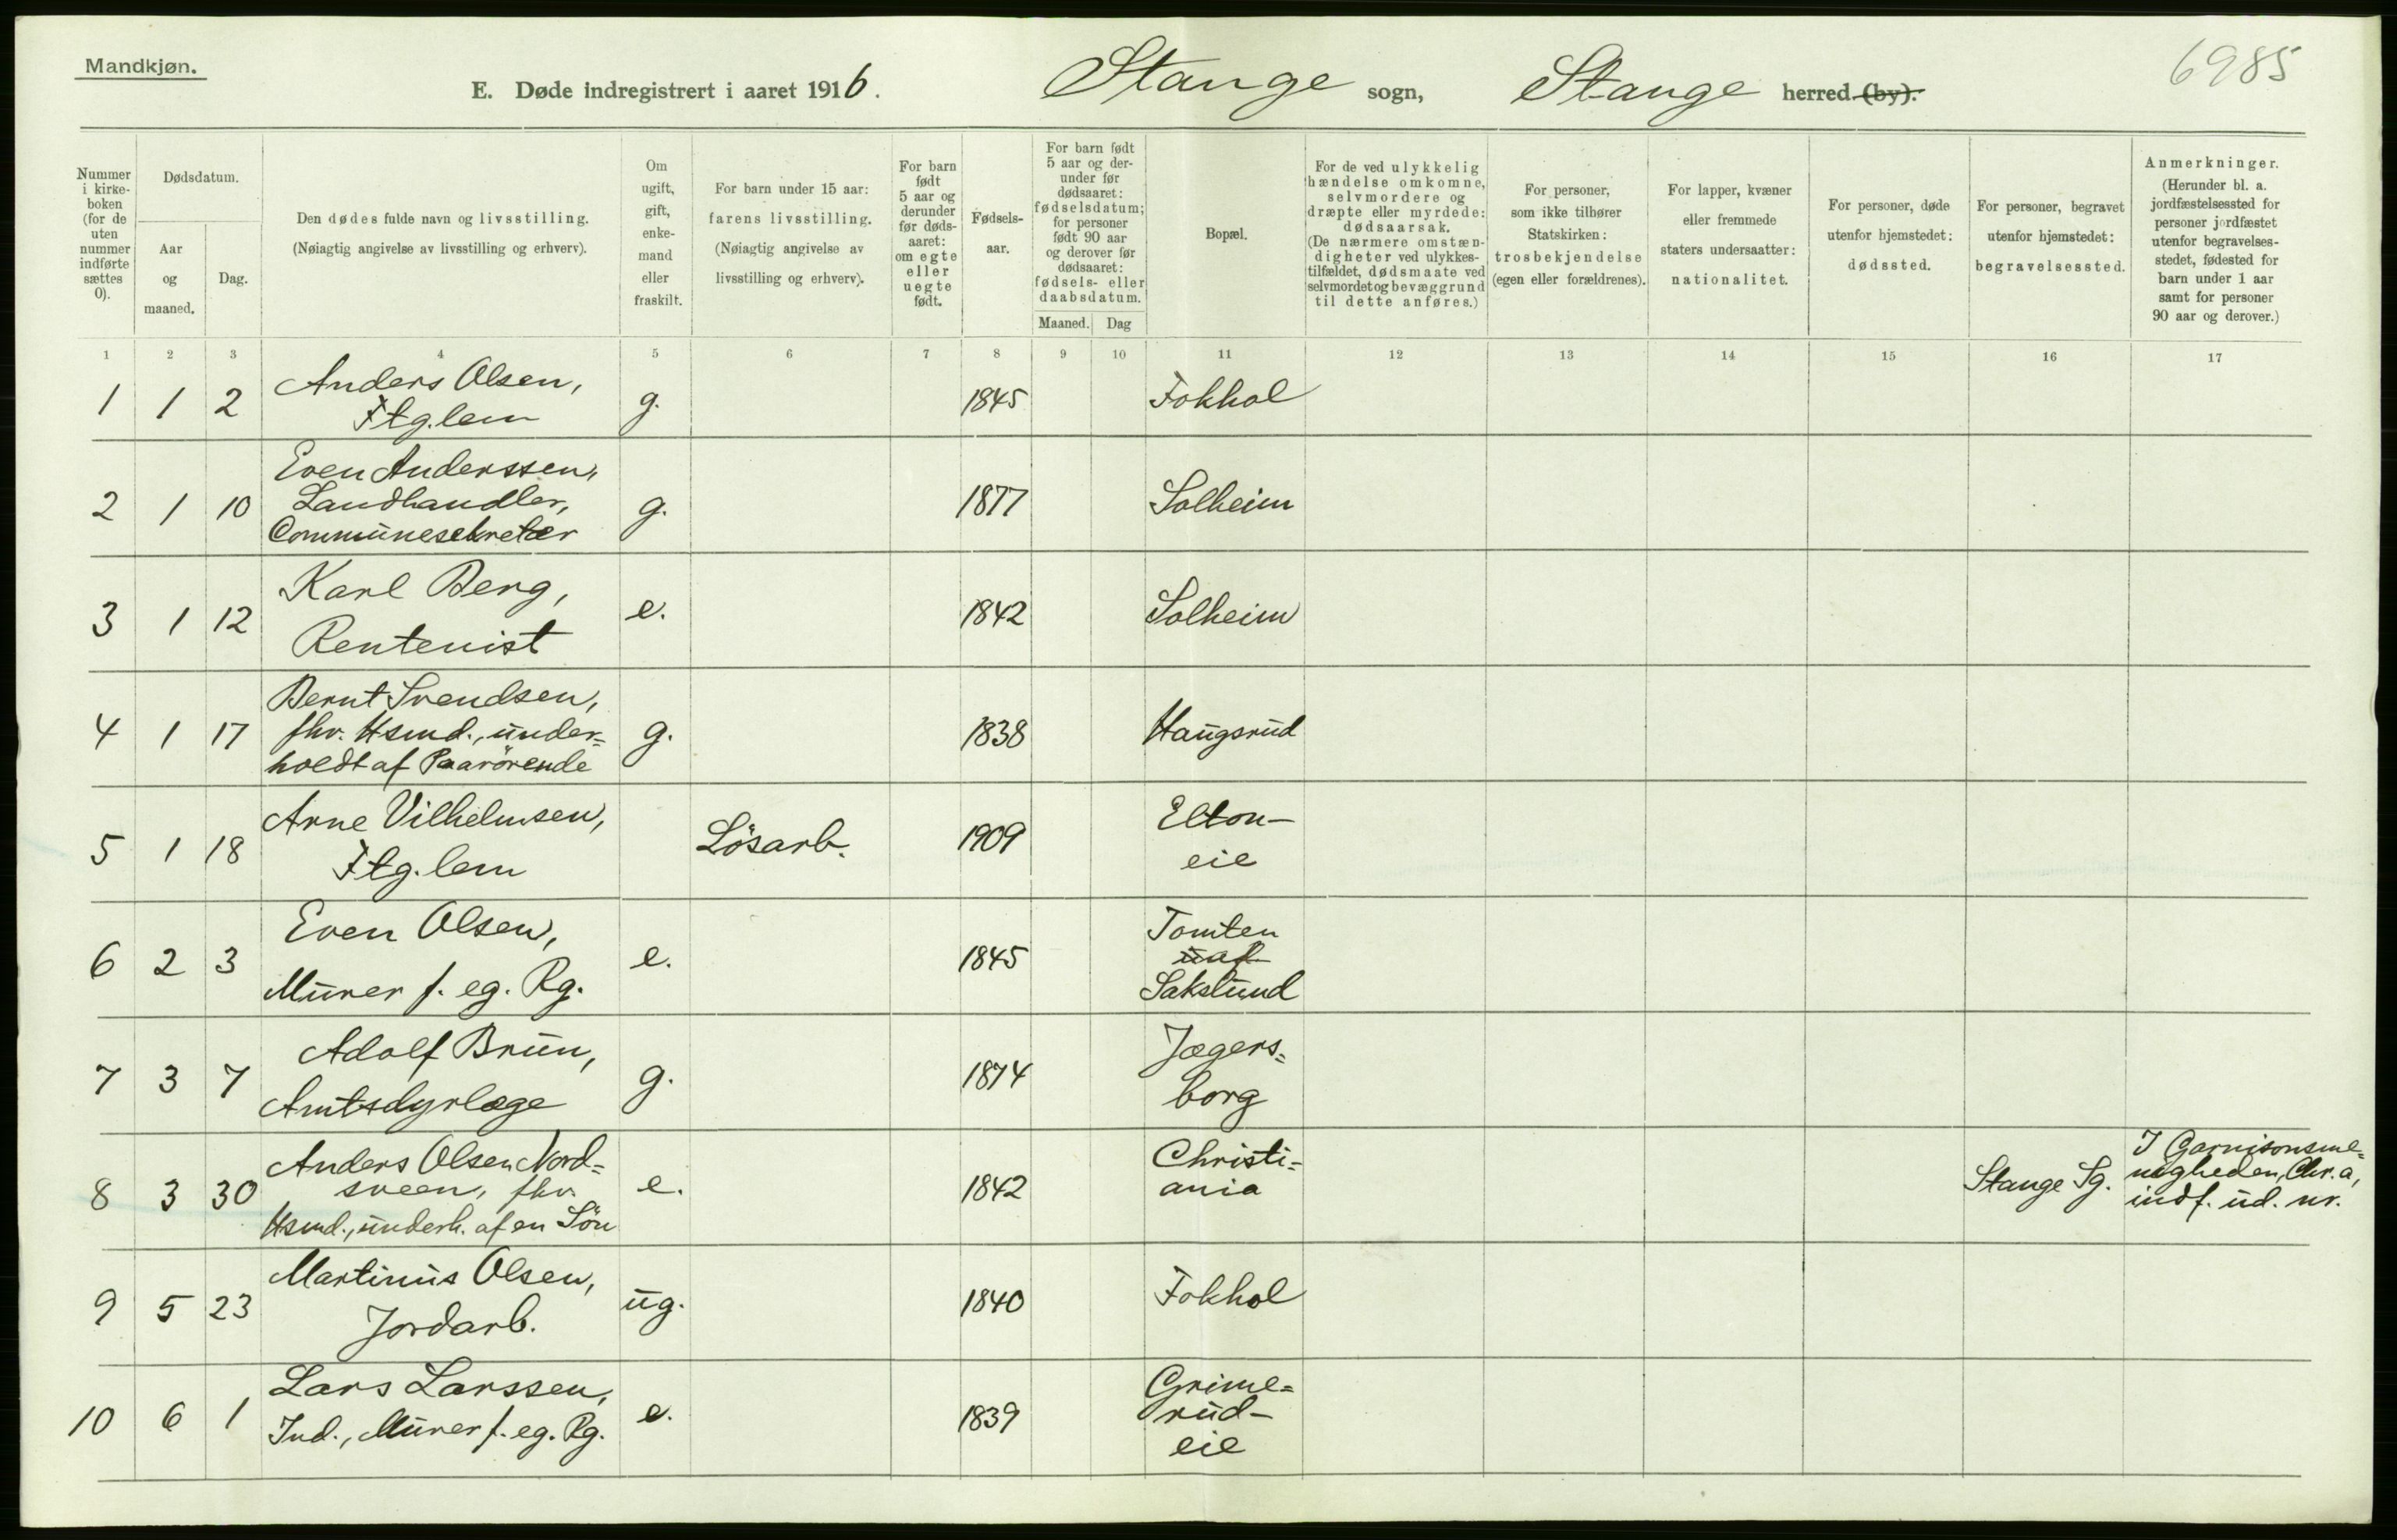 Mandkjøn.
E. Døde indregistrert i aaret 1916.
Stange sogn, Stange herred (by).
6985
Nummer i kirke-boken (for de uten nummer indførte sættes 0).
Dødsdatum.
Aar og maaned.
Dag.
Den dødes fulde navn og livsstilling. (Nøiagtig angivelse av livsstilling og erhverv).
Om ugift, gift, enke-mand eller fraskilt.
For barn under 15 aar: farens livsstilling. (Nøiagtig angivelse av livsstilling og erhverv).
For barn født 5 aar og derunder før døds-aaret: om egte eller uegte født.
Fødsels-aar.
For barn født 5 aar og der-under før dødsaaret: fødselsdatum; for personer født 90 aar og derover før dødsaaret: fødsels- eller daabsdatum.
Maaned. Dag
Bopæl.
For de ved ulykkelig hændelse omkomne, selvmordere og dræpte eller myrdede: dødsaarsak. (De nærmere omstæn-digheter ved ulykkes-tilfældet, dødsmaate ved selvmordet og bevæggrund til dette anføres.)
For personer, som ikke tilhører Statskirken: trosbekjendelse (egen eller forældrenes).
For lapper, kvæner eller fremmede staters undersaatter: nationalitet.
For personer, døde utenfor hjemstedet: dødssted.
For personer, begravet utenfor hjemstedet: begravelsessted.
Anmerkninger. (Herunder bl. a. jordfæstelsessted for personer jordfæstet utenfor begravelses-stedet, fødested for barn under 1 aar samt for personer 90 aar og derover.)
1 2 3 4 5 6 7 8 9 10 11 12 13 14 15 16 17
1 1 2 Anders Olsen, g. 1845 Fokhol
Ftg.lem
2 1 10 Even Anderssen, g. 1877 Solheim
Landhandler,
Communesekretær
3 1 12 Karl Berg, e. 1842 Solheim
Rentenist
4 1 17 Bernt Svendsen, g. 1838 Haugsrud
fhv. Hsmd., under=
holdt af Paarörende
5 1 18 Arne Vilhelmsen, Lösarb. 1909 Elton-
Ftg. lem eie
6 2 3 Even Olsen, e. 1845 Tomten
uaf
Murer f. eg. Rg. Sakslund
7 3 7 Adolf Bruun, g. 1874 Jægers=
Amtsdyrlæge borg
8 3 30 Anders Olsen Nord= e. 1842 Christi= Stange Sg. I Garnisonsme=
sveen, fhv. ania nigheden, Chr.a,
Hsmd., underh. af en Sön indf. ud. nr.
9 5 23 Martinus Olsen, ug. 1840 Fokhol
Jordarb.
10 6 1 Lars Larssen, e. 1839 Grime=
Ind., Murer f. eg. Rg. rud-
eie